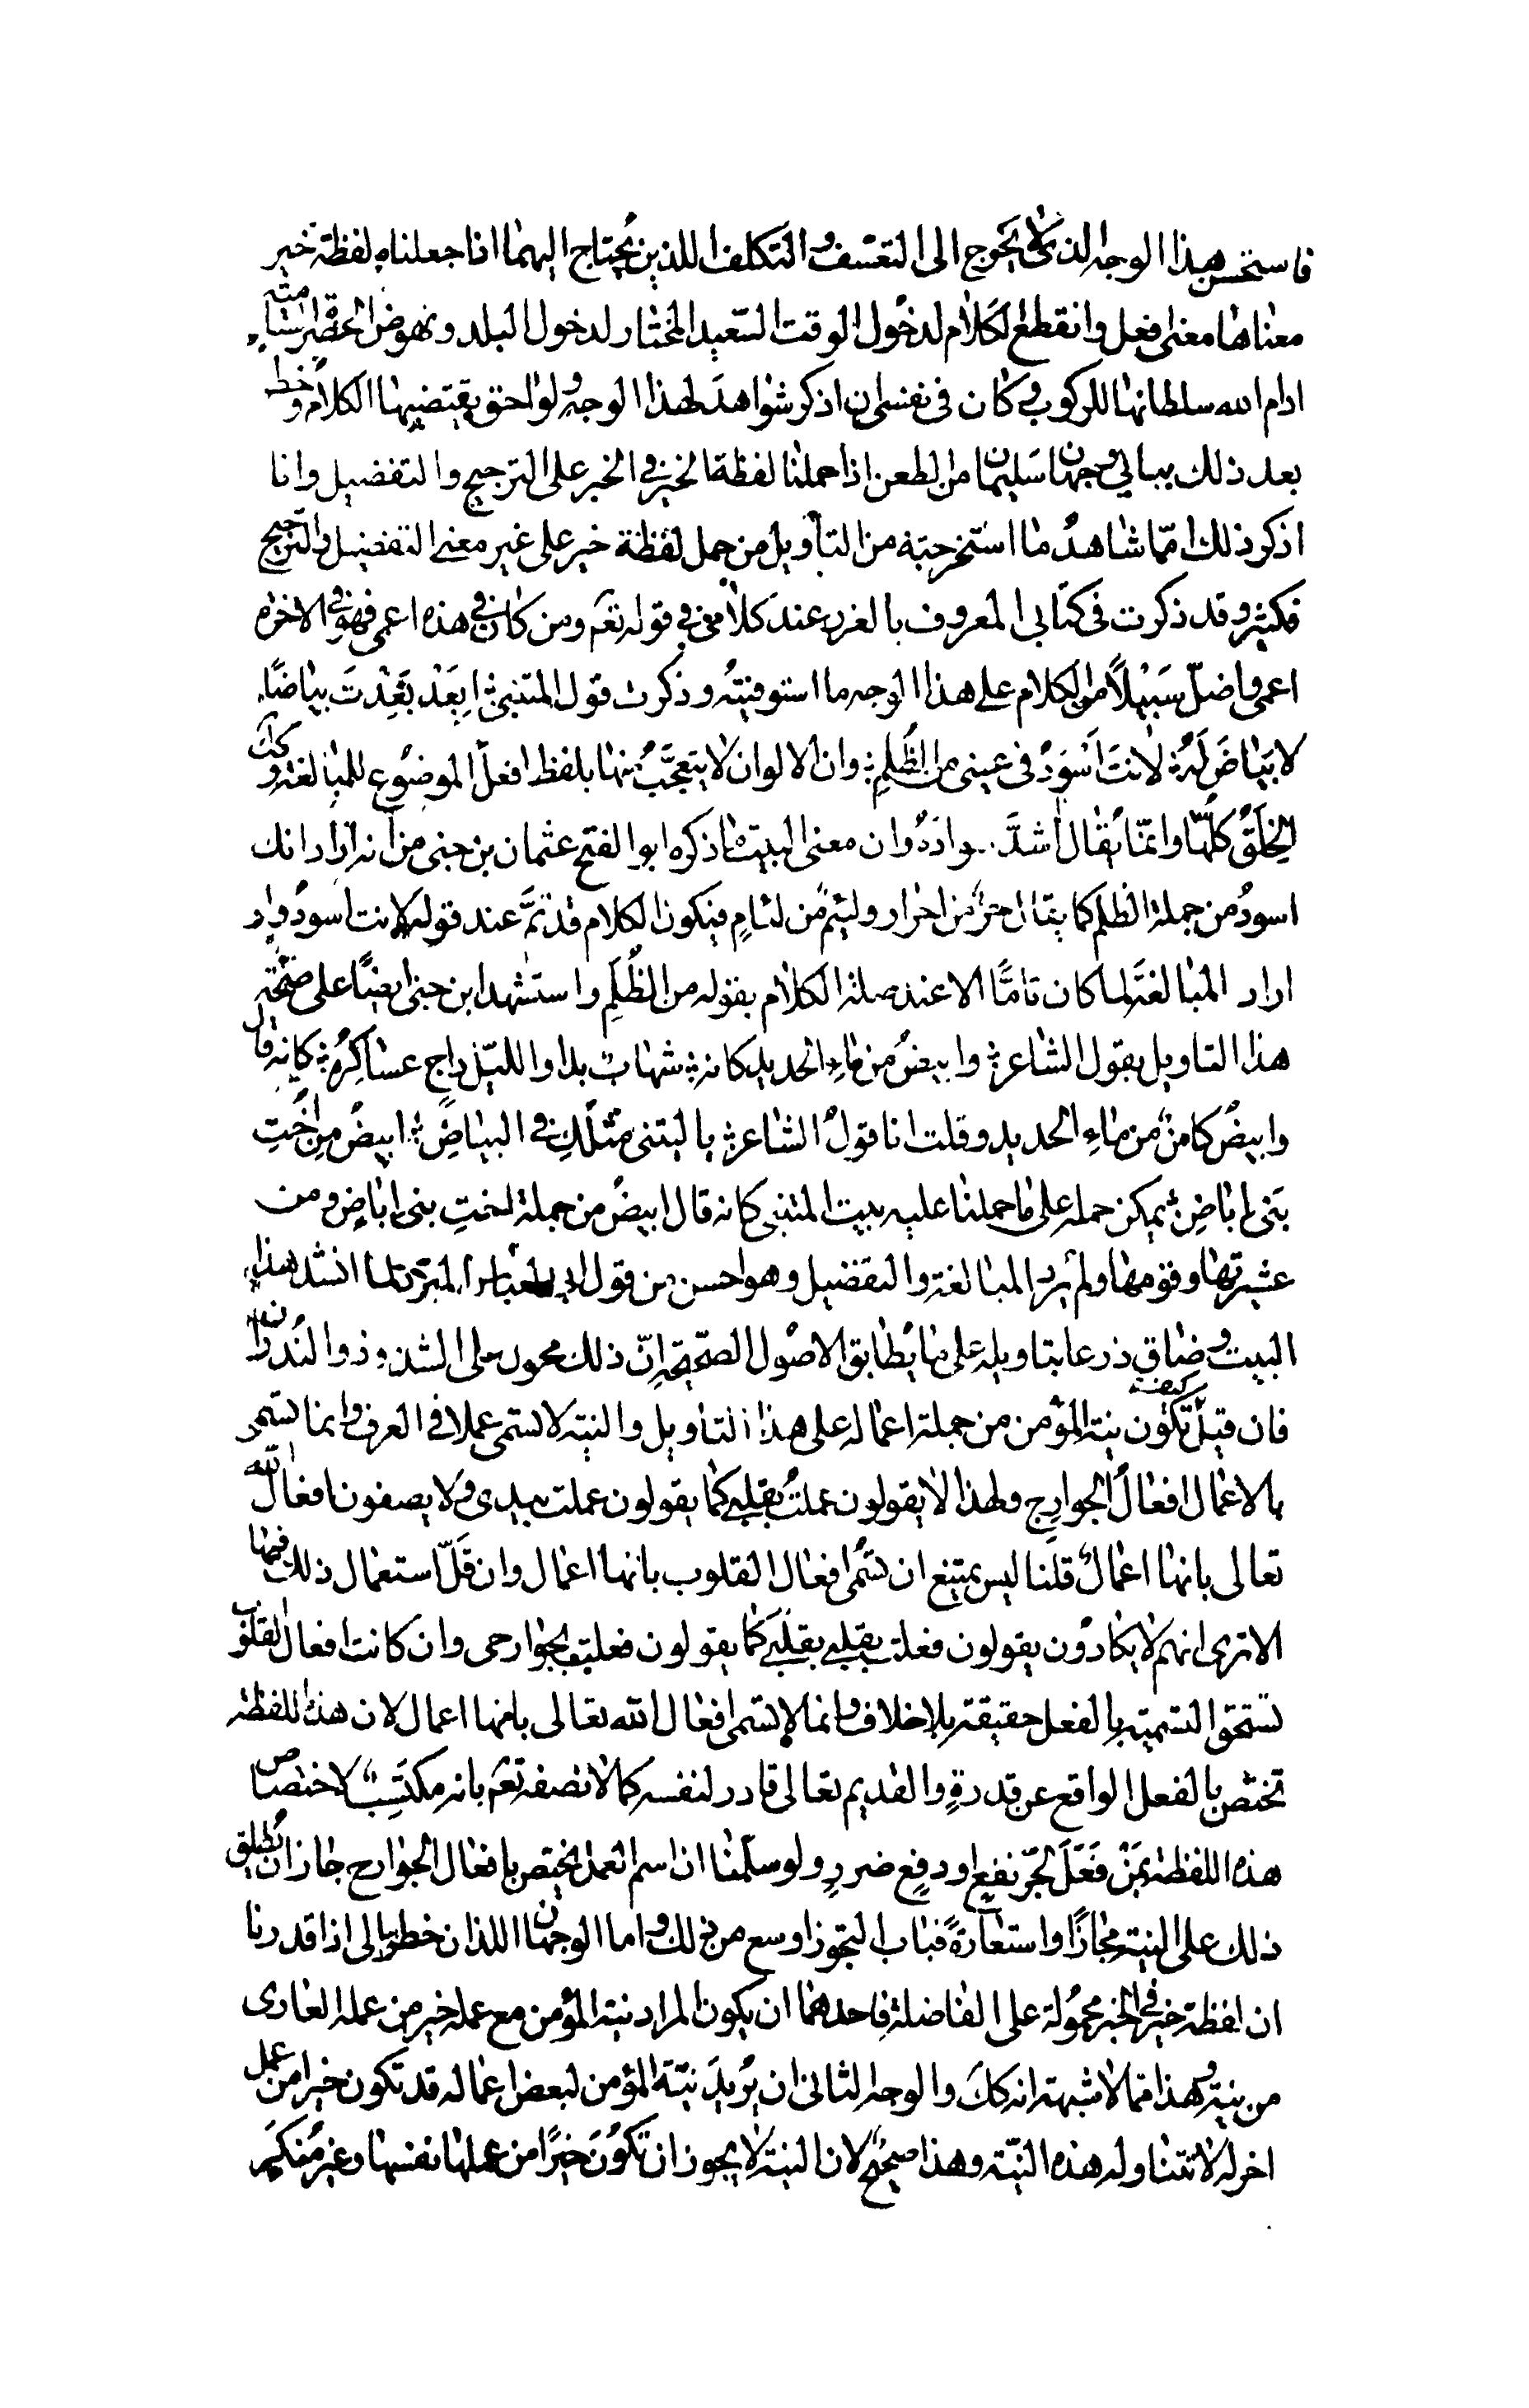 فاستحسن هذا الوجه الذى لا يحوج الى التعسف و التكلف اللذين يحتاج اليهما اذا جعلناه لفظة خير
معناها معنى افعل وانقطع الكلام لدخول الوقت السعيد المختار لدخول البلد ونهوض الحضرة السامية
ادام الله سلطانها للركوب وكان فى نفسى ان اذكر شواهد لهذا الوجه ولواحق يقتضيها الكلام وخطر
بعد ذلك ببالي وجهان سليمان من الطعن اذا حملنا لفظة الخير في الخبر على الترجيح والتفضيل وانا
اذكر ذلك امّا شاهد ما استخرجته من التأويل من حمل لفظة خير على غير معنى التفضيل والترجيح
فكثير وقد ذكرت فى كتابى المعروف بالغرر عند كلامى فى قوله تعم ومن كان في هذه اعمى فهو في الاخرة
اعمى واضلّ سَبِيْلاً من الكلام على هذا الوجه ما استوفيته وذكرت قول المتنبي اِبعَدْ بَعِدْتَ بياضًا
لا بَيَاضَ لَهُ لانتَ اَسْوَدُ فى عينى من الظُّلَمِ وان الالوان لا يتعجّبُ منها بلفظ افعل الموضوع للمبالغة وكك
الخِلَقُ كلّها وانمّا يُقال اشدَّ سوادهُ وان معنى البيت ما ذكره ابو الفتح عثمان بن جنى من انه اراد انك
اسودُ من جملة الظلم كما يقال حرّ من احرار ولئيم من لئام فيكون الكلام قد تمَّ عند قوله لانت اسود ولو
اراد المبالغة لما كان تامًّا الا عند صلة الكلام بقوله من الظُلَمِ واستشهد ابن جنى ايضًا على صحّة
هذا التاويل بقول الشاعر وابيضُ من ماءِ الحديد كانه شهاب بدا والليّل داجٍ عساكِرُهُ كانه قال
وابيضُ كامنٌ من ماءِ الحديد وقلت انا قول الشاعر يا ليتنى مثلُكِ في البياضِ ابيضُ من اُخْتِ
بَنى اباضِ يمكن حمله على ما حملنا عليه بيت المتنبى كانه قال ابيضُ من جملة اختِ بنى اباضٍ ومن
عشيرتها وقومها ولم يُرد المبالغة والتفضيل وهو احسن من قول ابى العباس المبرّد لما انشد هذا
البيت وضاق ذرعا بتاويله على ما يُطابق الاصول الصّحيحة انّ ذلك محمول على الشذوذ والنُدران
فان قيل كيف تكون نية المؤمن من جملة اعماله على هذا التاويل والنية لا تسمى عملا فى العرف وانما تسمى
بالاعمال افعالُ الجوارح ولهذا لا يقولون عملتُ بقلبي كما يقولون عملت بيدى ولا يصفون افعال الله
تعالى بانها اعمالٌ قلنا ليس يمتنع ان تُسمّى افعال القلوب بانها اعمال وان قَلّ استعمال ذلك فيها
الا ترى انهم لا يكادُون يقولون فعلت بقلبي بقلبي كما يقولون فعلت بجوارحى وان كانت افعال القلوب
تستحق التسمية بالفعل حقيقة بلا خلاف وانما لا تسمى افعال الله تعالى بانها اعمال لان هذه اللفظة
تختص بالفعل الواقع عن قدرةٍ والقديم تعالى قادر لنفسه كما لا نصفه تعم بانه مكتَسِبٌ لاختصاص
هذه اللفظة بمَنْ فَعَلَ لجرّ نفع او دفع ضررٍ ولو سلّمنا ان اسم العمل يختص بافعال الجوارح جاز ان يُطلق
ذلك على النية مجازًا واستعارةً فباب التجوز اوسع من ذلك واما الوجهان اللذان خطرا ببالى اذا قدرنا
ان لفظة خير في الخبر محمُولة على الفاضلة فاحدهما ان يكون المراد نية المؤمن مع عمله خير من عمله العارى
من نية وهذا مما لا شبهة انه كك والوجه الثانى ان يُريدَ نيّة المؤمن لبعض اعماله قد تكون خيرا من عمل
اخر له لا تتناوله هذه النيّة وهذا صحيحٌ لان النية لا يجوز ان تكونَ خيرًا من عملها نفسها وغير مُنكَر